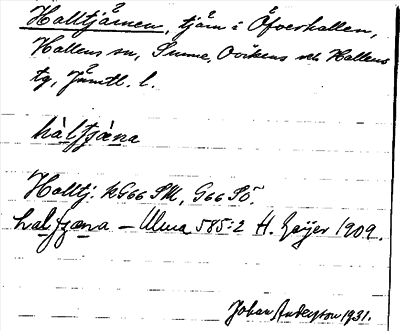 Halltjärnen, tjärn i Öfverhallen,
Hallens sn, Sunne, Ovikens och Hallens
tg, Jämtl. l.
hàlfjæ̀na
Halltj. KG66 SM, G66 Sö.
halfjæna – Ulma 585:2 H. Geijer 1909.
Johan Andersson 1931.